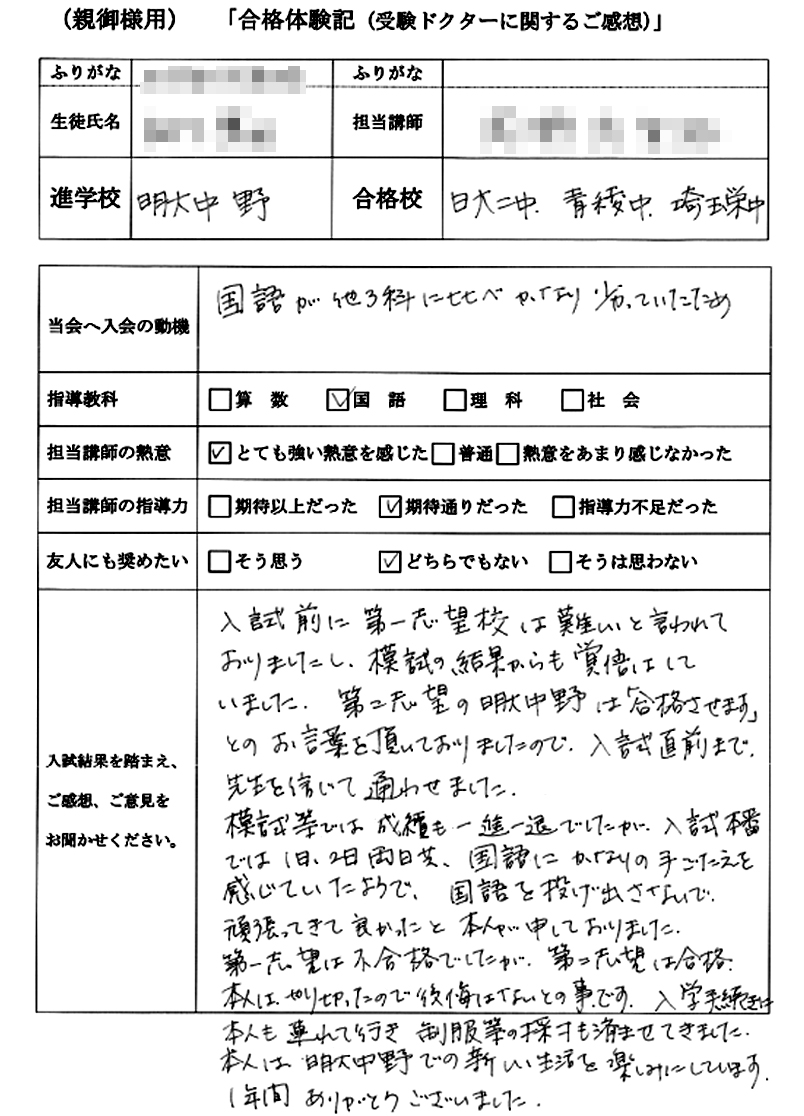 （親御様用）　「合格体験記（受験ドクターに関するご感想）」
ふりがな　ふりがな
生徒氏名　担当講師
進学校　明大中野　合格校　日大二中、青稜中、埼玉栄中
当会へ入会の動機　国語が他3科に比べかなり劣っていたため
指導教科　□算　数　☑国　語　□理　科　□社　会
担当講師の熱意　☑とても強い熱意を感じた□普通□熱意をあまり感じなかった
担当講師の指導力　□期待以上だった　☑期待通りだった　□指導力不足だった
友人にも奨めたい　□そう思う　☑どちらでもない　□そうは思わない
入試結果を踏まえ、
ご感想、ご意見を
お聞かせください。
入試前に第一志望校は難しいと言われて
おりましたし、模試の結果からも覚悟はして
いました。第二志望の明大中野は「合格させます」
とのお言葉を頂いておりましたので、入試直前まで、
先生を信じて通わせました。
模試等では成績も一進一退でしたが、入試本番
では1日、2日両日共、国語にかなりの手ごたえを
感じていたようで、国語を投げ出さないで、
頑張ってきて良かったと本人が申しておりました。
第一志望は不合格でしたが、第二志望は合格。
本人は、やり切ったので後悔はないとの事です。入学手続きは
本人も連れて行き制服等の採寸も済ませてきました。
本人は、明大中野での新しい生活を楽しみにしています。
1年間ありがとうございました。